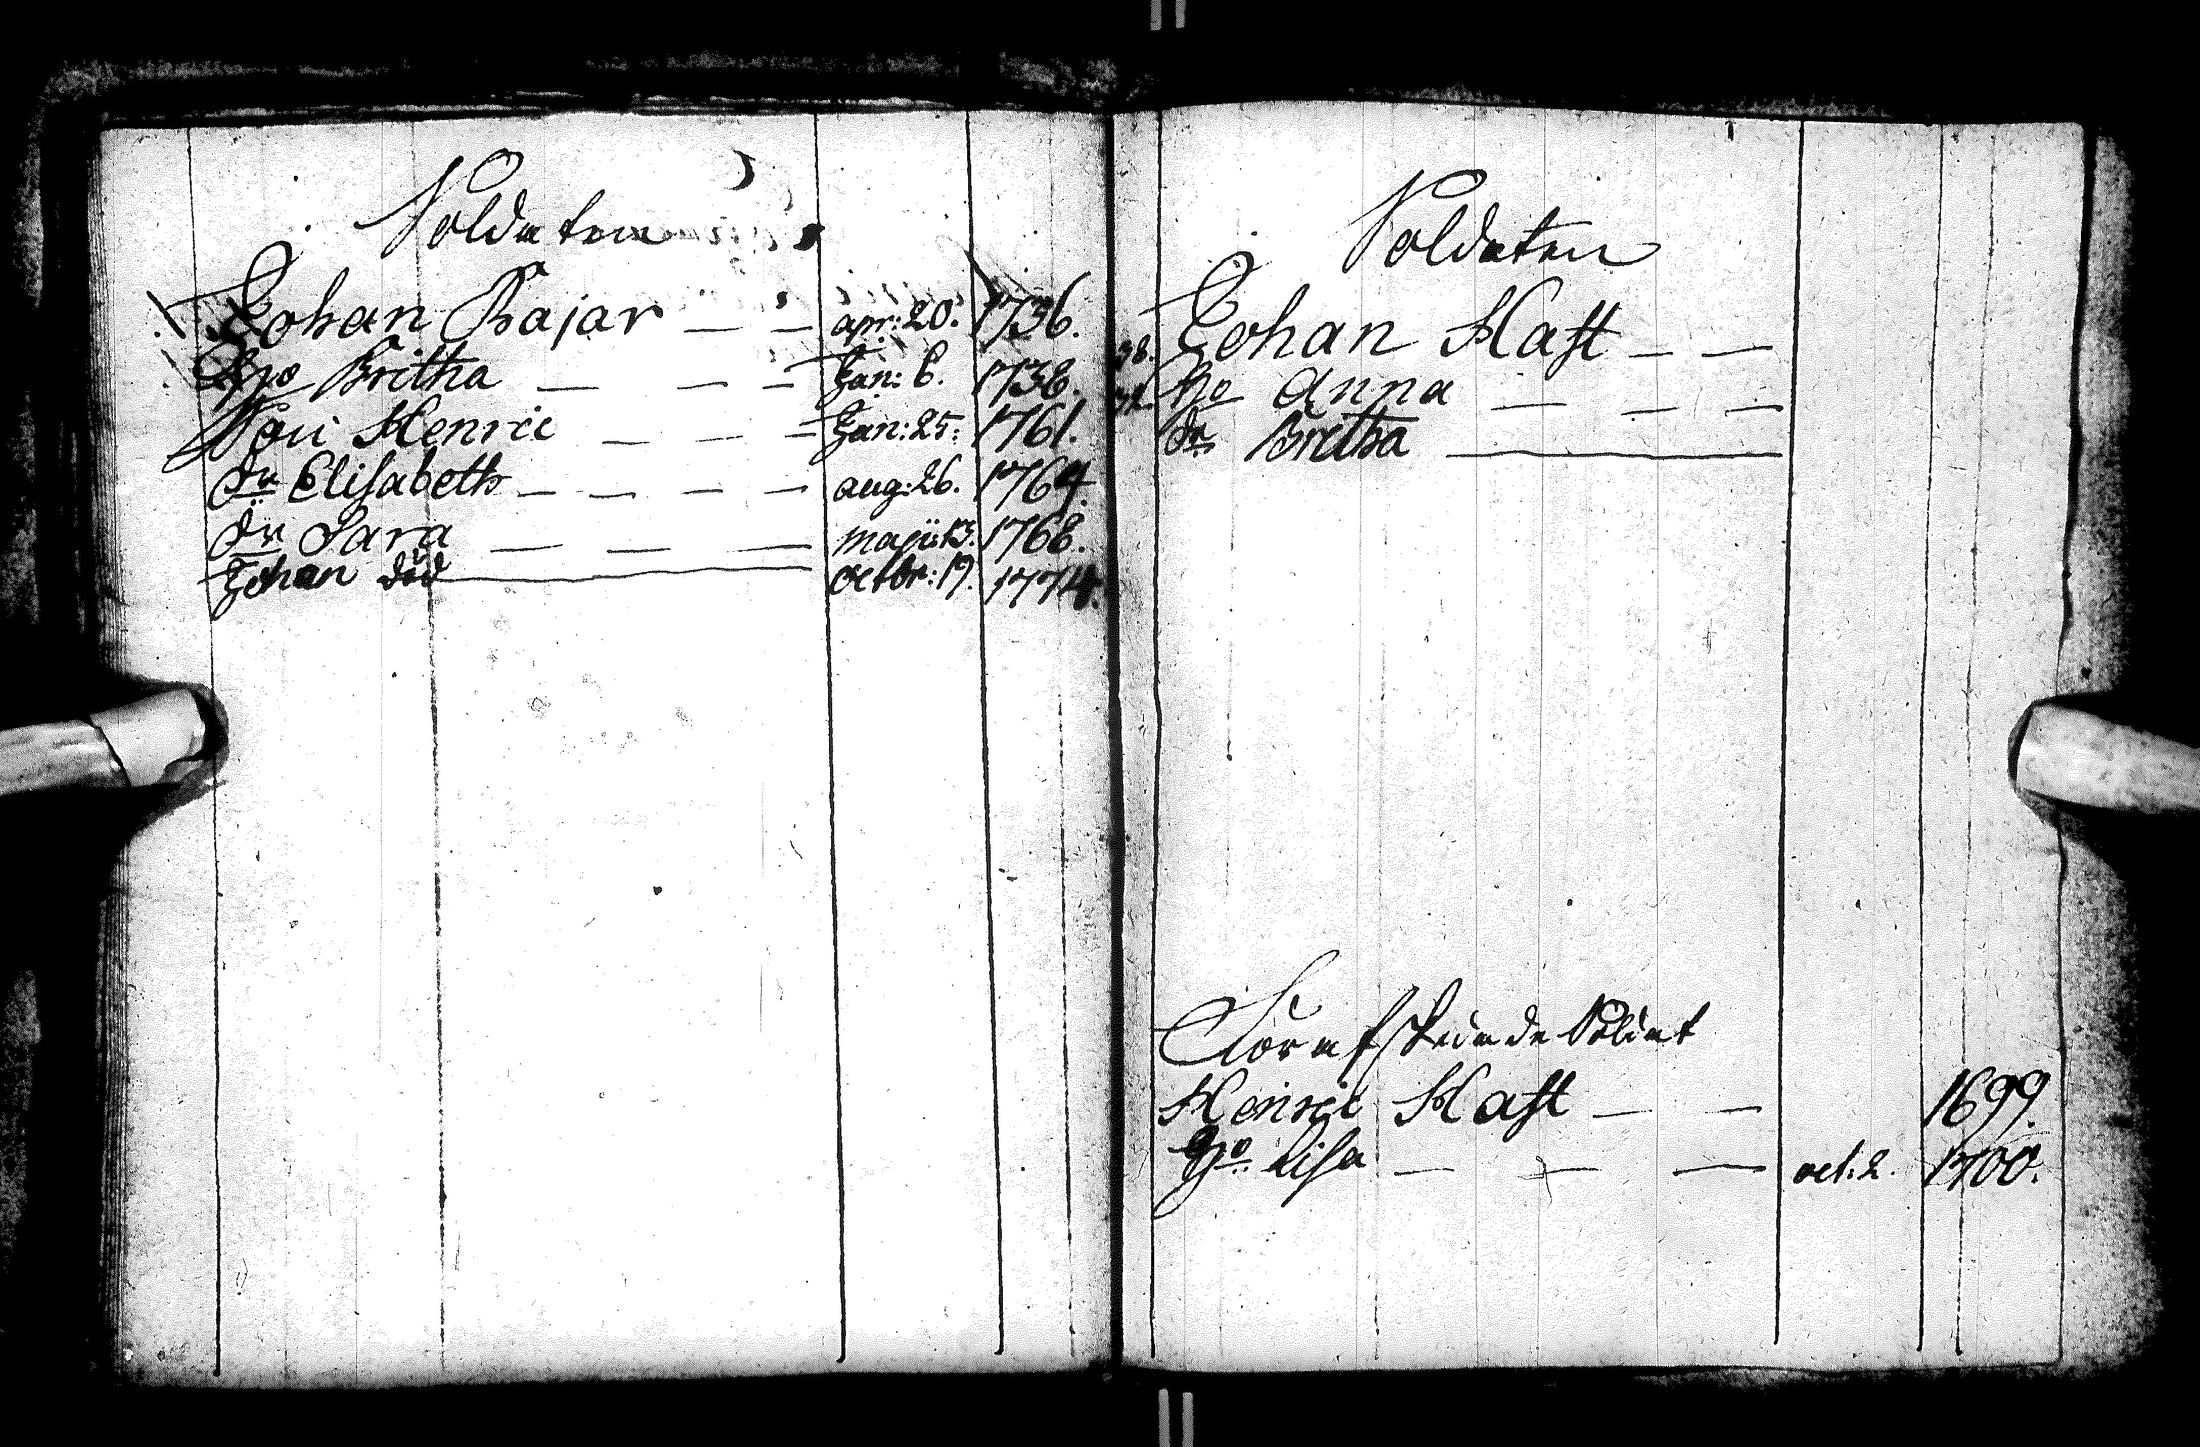 Soldaten
Johan Bajar — — apr: 20. 1736.
Ho Britha — — — Jan: 6. 1738.
Son Henric — — Jan: 25. 1761.
dr Elisabeth — — — — aug: 26. 1764.
dr Sara — — — maji: 13. 1768.
Johan död — octbr: 19. 1774.
Soldaten
Johan Hast — —
38. Ho Anna — — —
dr Britha —
Förafskedade Soldat
Henric Hast — — 1699.
Ho Lisa — — — oct. 2. 1700.